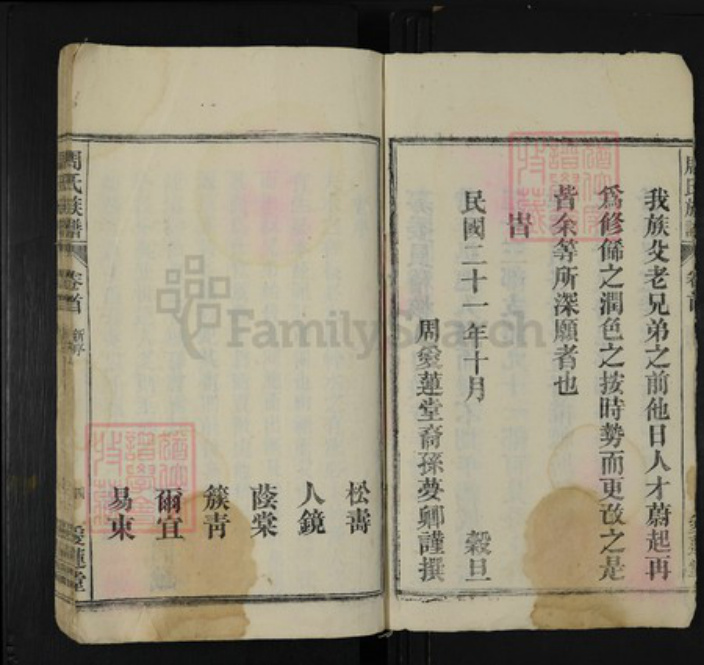 我族父老兄弟之前他日人才蔚起再
為修俻之潤色之按時勢而更改之是
皆余等所深願者也
旹
民國二十一年十月 榖旦
周愛蓮堂裔孫夢卿謹撰
松壽
人鏡
蔭棠
簇靑
爾宜
易東
周氏族譜 卷首 新序 四 愛蓮堂
周氏族譜 卷首 愛蓮堂
FamilySearch